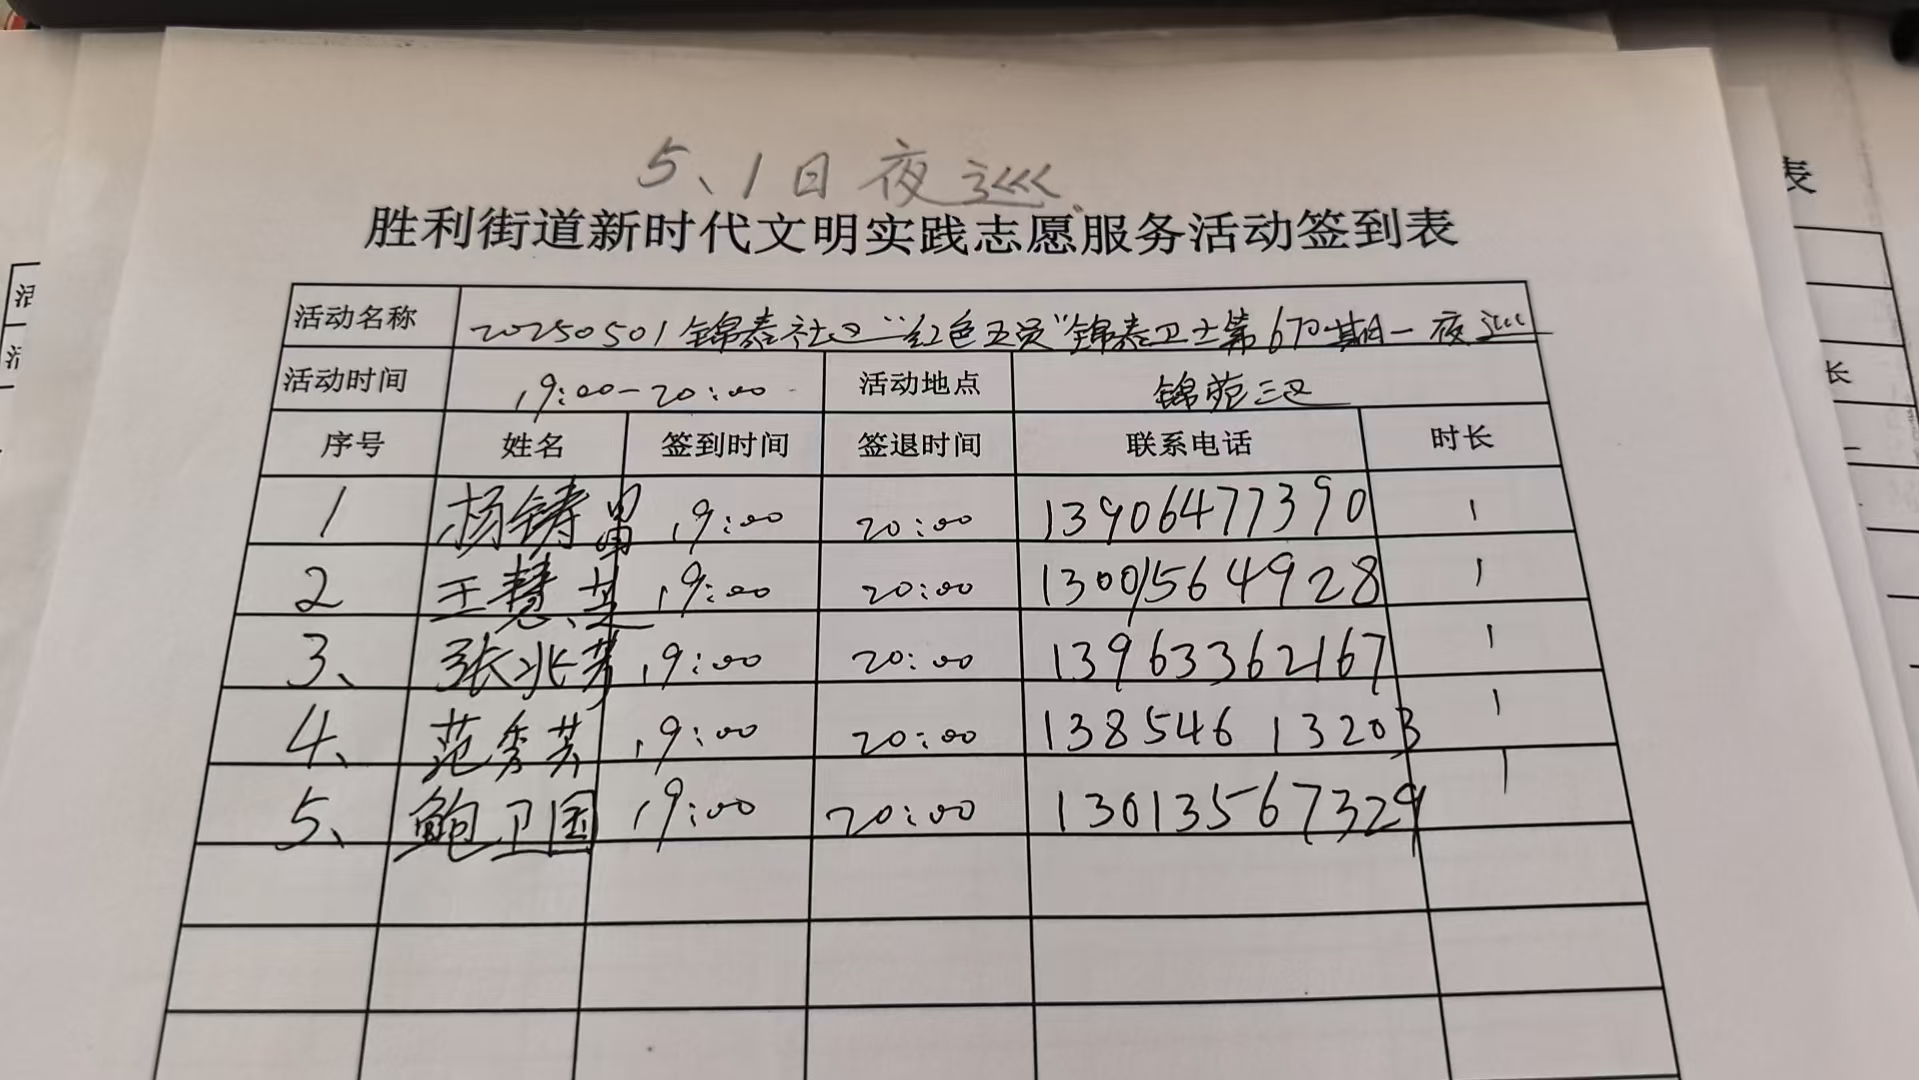 5、1日夜巡
胜利街道新时代文明实践志愿服务活动签到表
活动名称 20250501锦泰社区“红色五员”锦泰卫士第670期一夜巡
活动时间 19:00-20:00 活动地点 锦苑三区
序号 姓名 签到时间 签退时间 联系电话 时长
1 杨铸 19:00 20:00 13906477390 1
2 王慧芝 19:00 20:00 13001564928 1
3、 张兆芳 19:00 20:00 13963362167 1
4、 范秀芬 19:00 20:00 13854613203 1
5、 鲍卫国 19:00 20:00 13013567329 1
表
长